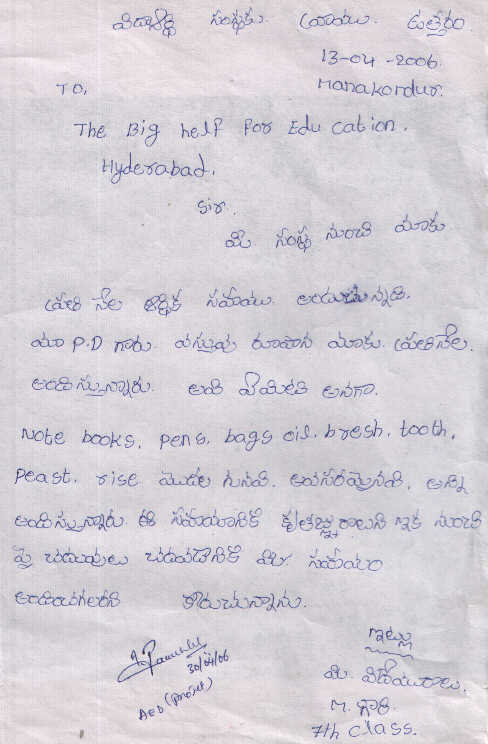 విద్యార్థి సంస్థకు వ్రాయు ఉత్తరం
13-04-2006.
Manakondur.
TO,
The Big help For Education.
Hyderabad.
Sir.
మీ సంస్థ నుంచి మాకు
ప్రతి నెల ఆర్థిక సహాయం అందుచున్నది.
మా P.D గారు వస్తువు రూపాన మాకు ప్రతినెల
అందిస్తున్నారు. అవి ఏమిటి అనగా.
Note books, pens, bags oil, bresh, tooth,
Peast, rise మొదలగునవి. అవసరమైనవి, అన్ని
అందిస్తున్నారు ఈ సహాయానికి కృతజ్ఞురాలుని ఇక నుంచి
పై చదువులు చదవడానికి మీ సహాయం
అందించగలరని కోరుచున్నాను.
ఇట్లు
మీ విధేయురాలు.
M.
7th class.
30/04/06
AEO (project)